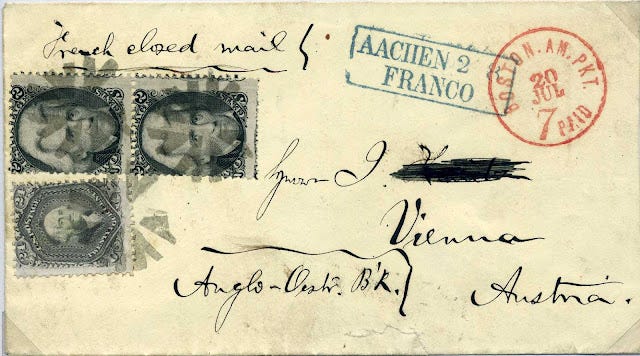 French closed mail
AACHEN 2
FRANCO
BOSTON. AM. PKT.
20
JUL
7 PAID
Herrn J.
Vienna
Anglo-Oestr. B'k.
Austria.